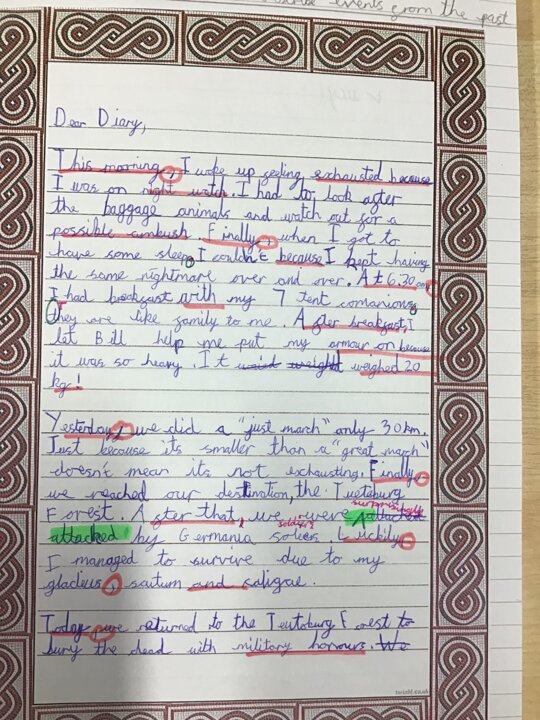 events from the past
Dear Diary,
This morning, I woke up feeling exhausted because
I was on night watch. I had to look after
the baggage animals and watch out for a
possible ambush. Finally, when I got to
have some sleep I couldn't because I kept having
the same nightmare over and over. At 6.30 am
I had breakfast with my 7 tent comanions
they are like family to me. After breakfast, I
let Bill help me put my armour on because
it was so heavy. It weighed 20
kg!
Yesterday, we did a "just march" only 30km.
Just because its smaller than a "great march"
doesn't mean its not exhausting. Finally,
we reached our destination, the Tuetoburg
surprisingly
Forest. After that, we were attacked
soldiers
attacked by Germania solers. Luckily,
I managed to survive due to my
gladius, scutum and caligae.
Today, we returned to the Teutoburg Forest to
bury the dead with military honours. We
twinkl.co.uk